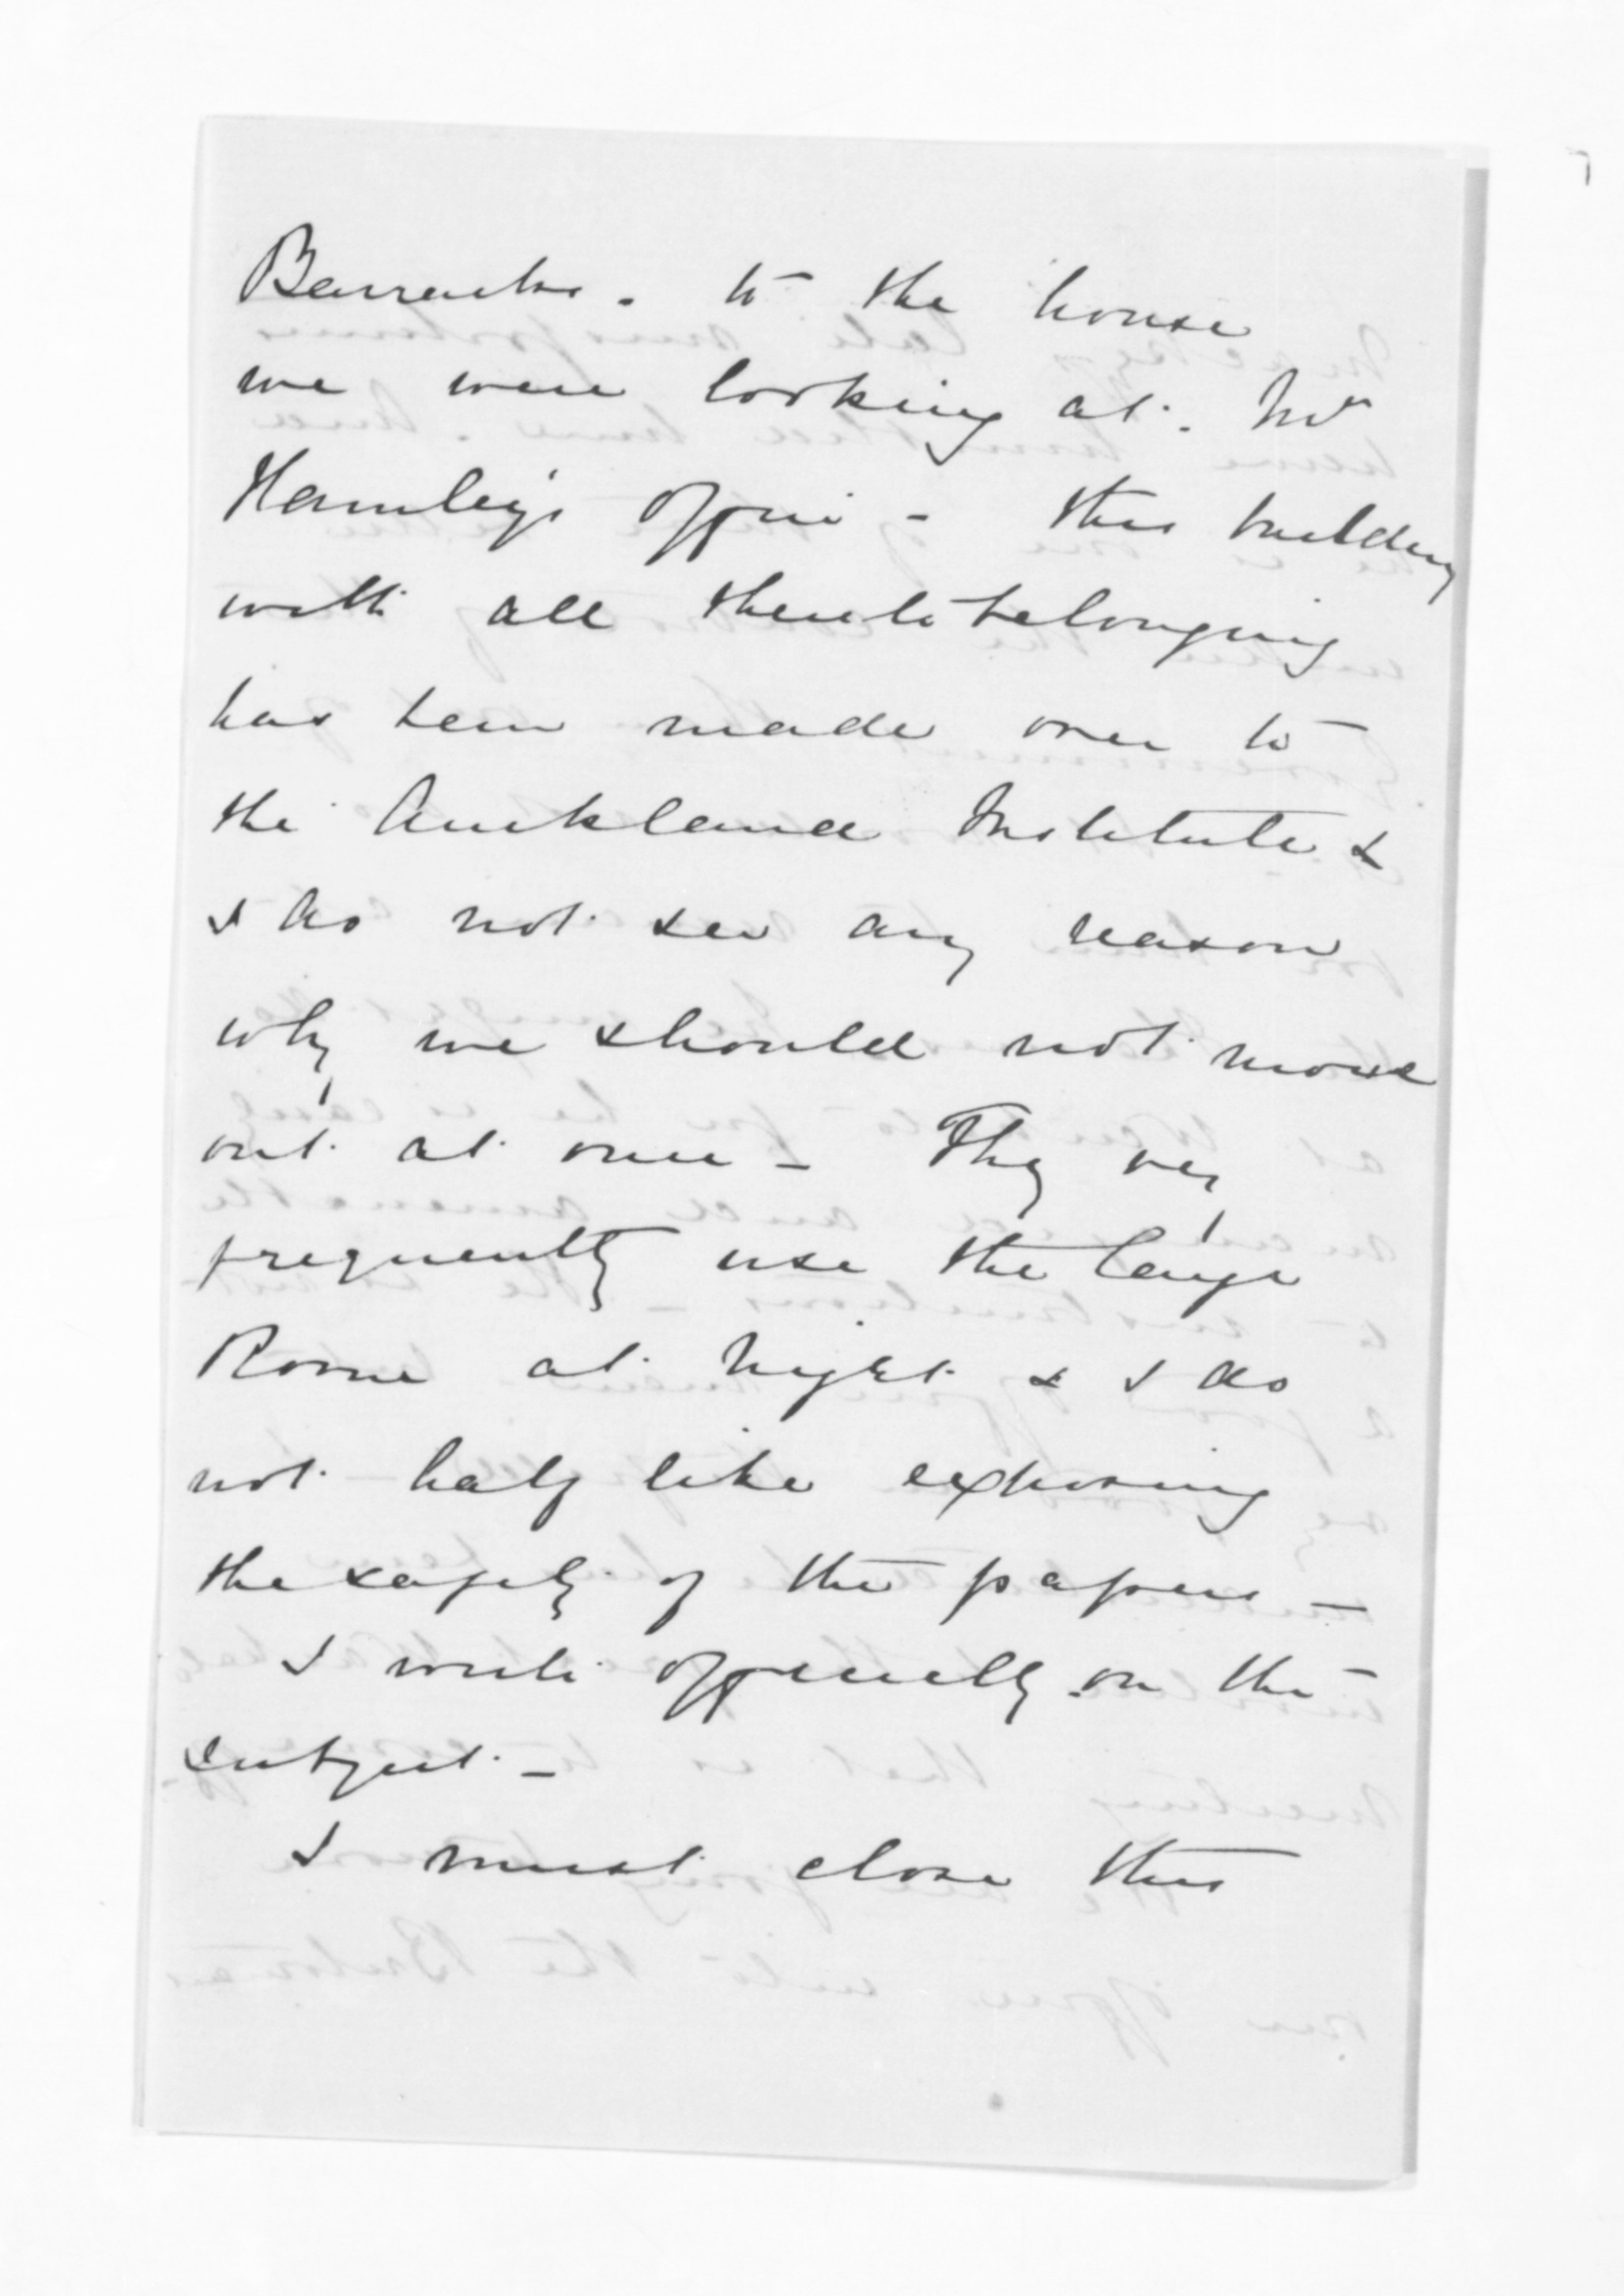 Barracks. to the house
we were looking at. Mr
Hamley's Office - this building
with all thereto belonging
has been made over to
the Auckland Institute &
I do not see any reason
why we should not move
out at once - They very
frequently use the large
Room at night & I do
not half like exposing
the safety of the papers -
I write officially on the
subject. -
I must close this